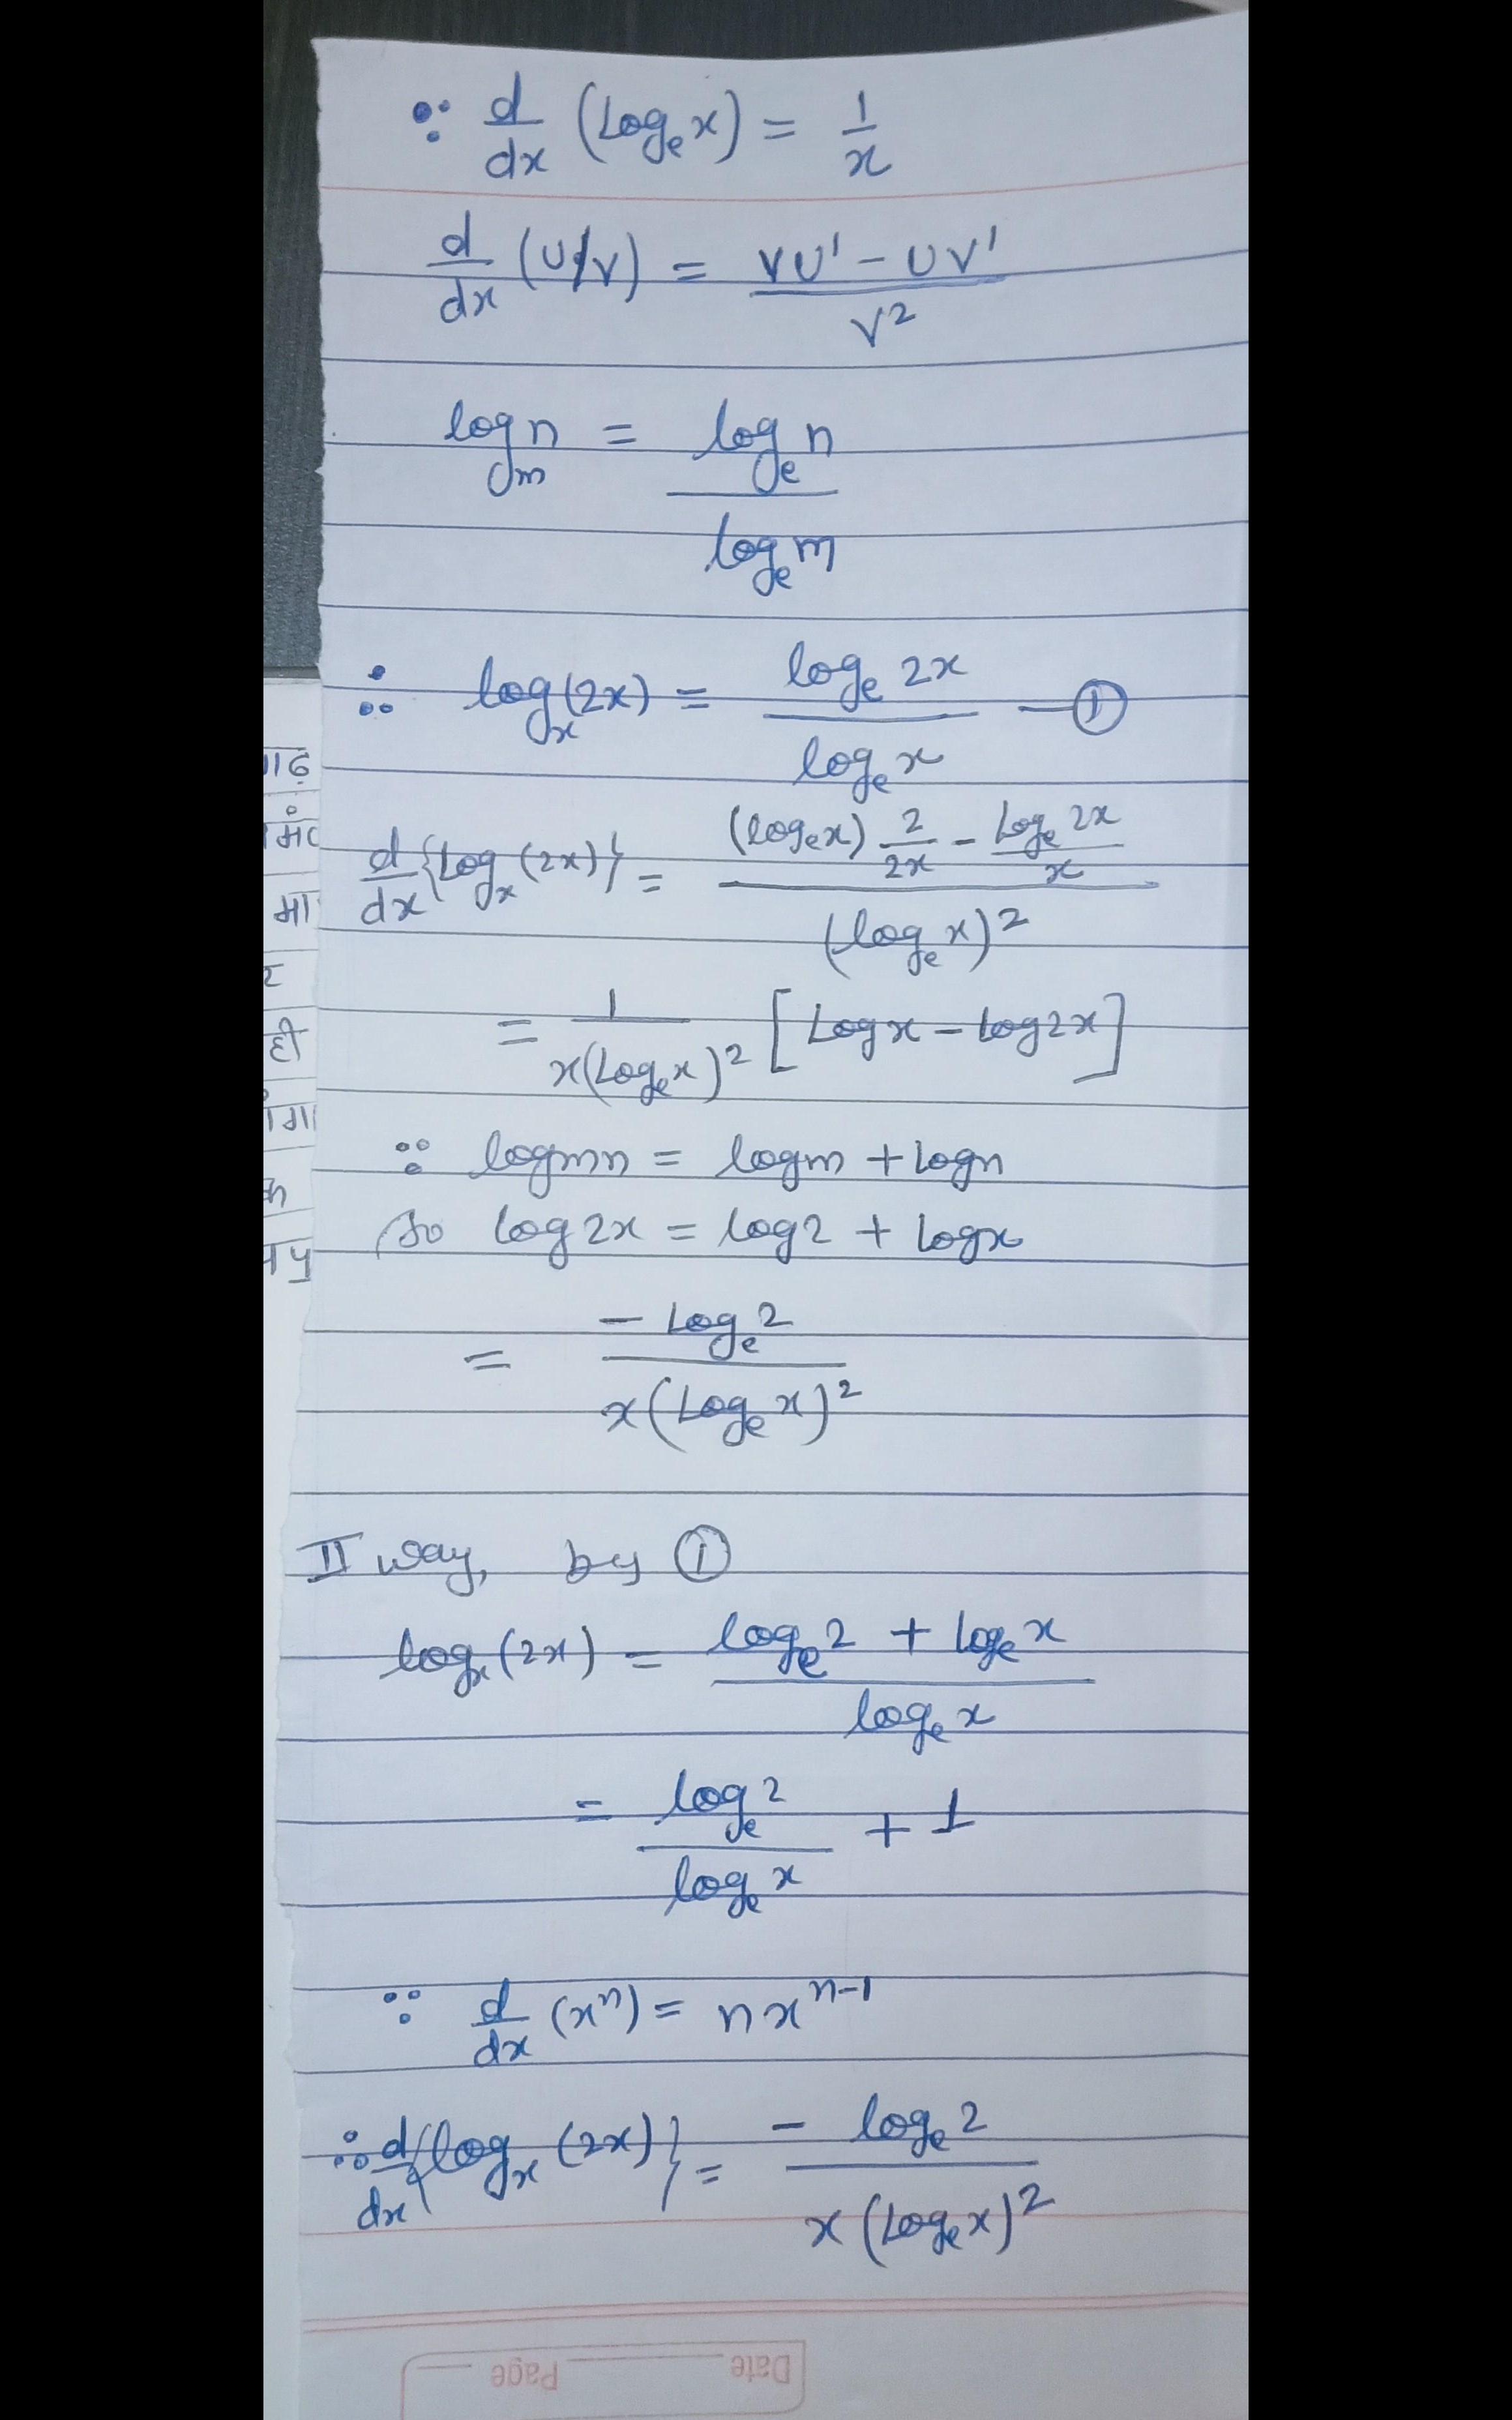 ∵ d/dx (Logₑx) = 1/x
d/dx (U/V) = VU' - UV' / V²
logₘn = logₑn / logₑm
∴ logₓ(2x) = logₑ2x / logₑx —①
d/dx {Logₓ(2x)} = (logₑx) 2/2x - Logₑ2x/x / (logₑx)²
= 1/x(Logₑx)² [Logx - log2x]
∵ logmn = logm + logn
So log2x = log2 + logx
= - Logₑ2 / x(Logₑx)²
II way, by ①
logₓ(2x) = logₑ2 + logₑx / logₑx
= logₑ2 / logₑx + 1
∵ d/dx (xⁿ) = nxⁿ⁻¹
∴ d/dx {logₓ(2x)} = - logₑ2 / x(Logₑx)²
Date Page